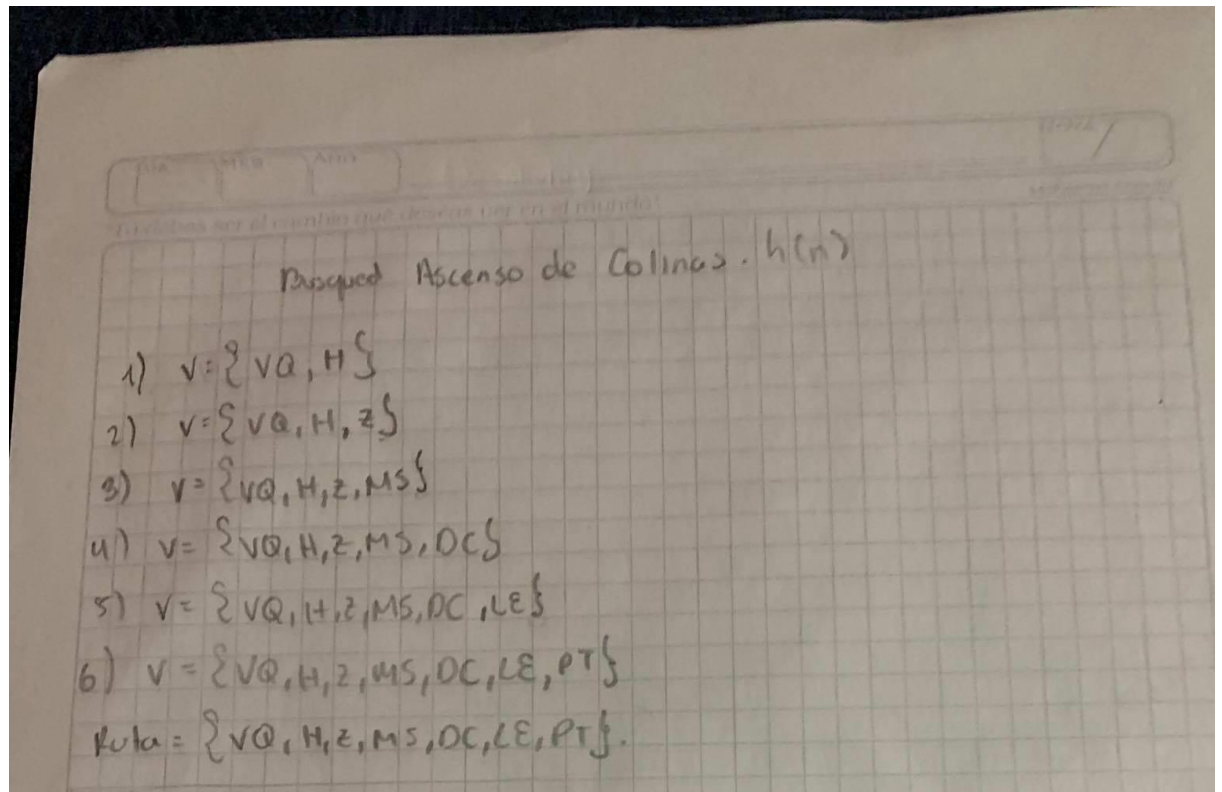 Tu debes ser el cambio que deseas ver en el mundo!
Busqued Ascenso de Colinas. h(n)
1) V={VQ, H}
2) V={VQ, H, Z}
3) V={VQ, H, Z, MS}
4) V={VQ, H, Z, MS, DC}
5) V={VQ, H, Z, MS, DC, LE}
6) V={VQ, H, Z, MS, DC, LE, PT}
Ruta={VQ, H, Z, MS, DC, LE, PT}.